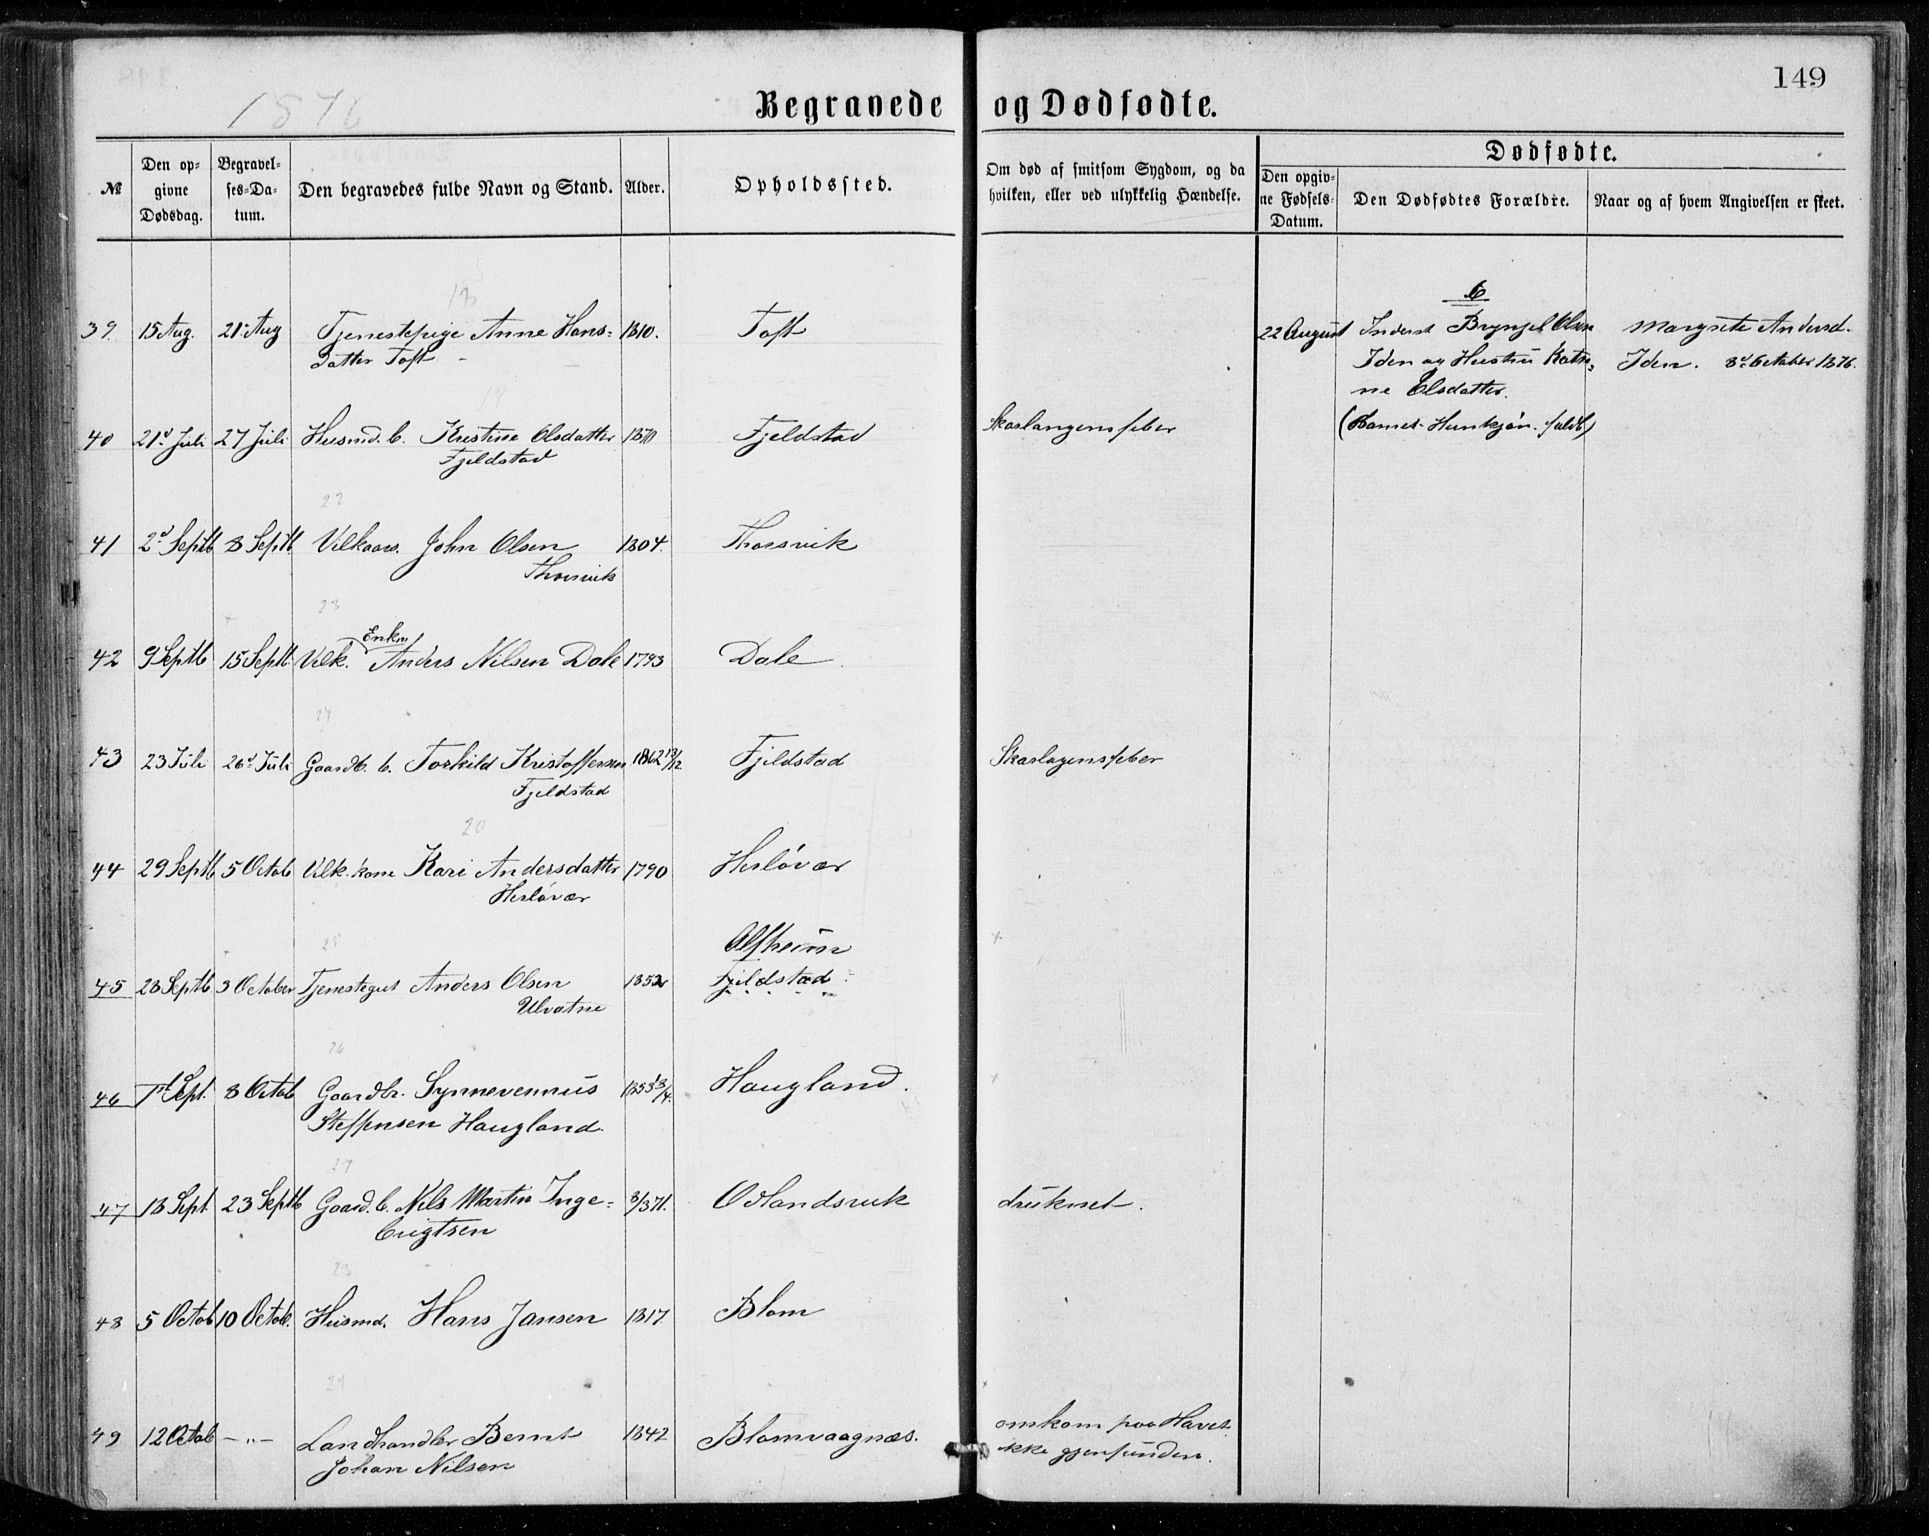 149
1876
Begravede og Dødfødte.
№
Den opgivne Dødsdag.
Begravelses-Datum.
Den begravedes fulde Navn og Stand.
Alder.
Opholdssted.
Om død af smitsom Sygdom, og da hvilken, eller ved ulykkelig Hændelse.
Dødfødte.
Den opgivne Fødsels-Datum.
Den Dødfødtes Forældre.
Naar og af hvem Angivelsen er skeet.
39. 15 Aug. 21. Aug Tjenestepige Anne Hans= 1810. Toft
datter Toft
6
22 August Inderst Bryngel Olsen Margrete Andersd.
Iden og Hustru Katri= Iden. 8d October 1876.
ne Olsdatter.
40 21d Juli 27 Juli Husmd. b. Kristine Olsdatter 1870 Fjeldstad Skarlangensfeber
Fjeldstad
22
41 2d Septb 8 Septb Vilkaars. John Olsen 1804. Thorsvik
Thorsvik
23
Enkm
42 9 Septb 15 Septb Vilk. Anders Nilsen Dale 1793 Dale
24
43 23 Juli 26d Juli Gaardb. b. Torkild Kristoffersen 1862 13/12 Fjeldstad Skarlagensfeber
Fjeldstad
20
44 29 Septb 5 Octob Vilk. kone Kari Andersdatter 1790 Herløvær
Herløvær
25
Alfheim
45 28 Septb 3 October Tjenestegut Anders Olsen 1852 Fjeldstad
Ulvatne
26
46 1 Sept. 8 Octob Gaardbr. Synnevennus 1853 Haugland.
Steffensen Haugland.
27
47 18 Sept. 23 Septb Gaard. b. Nils Martin Inge= 8/3 71. Odlandsvik druknet.
brigtsen
28
48 5 Octob 10 Octob. Husmd. Hans Jansen 1817. Blom
29
49 12 Octob — „ — Landhandler Bernt 1842 Blomvaagnæs. omkom paa Havet
Johan Nilsen ikke gjenfunden.